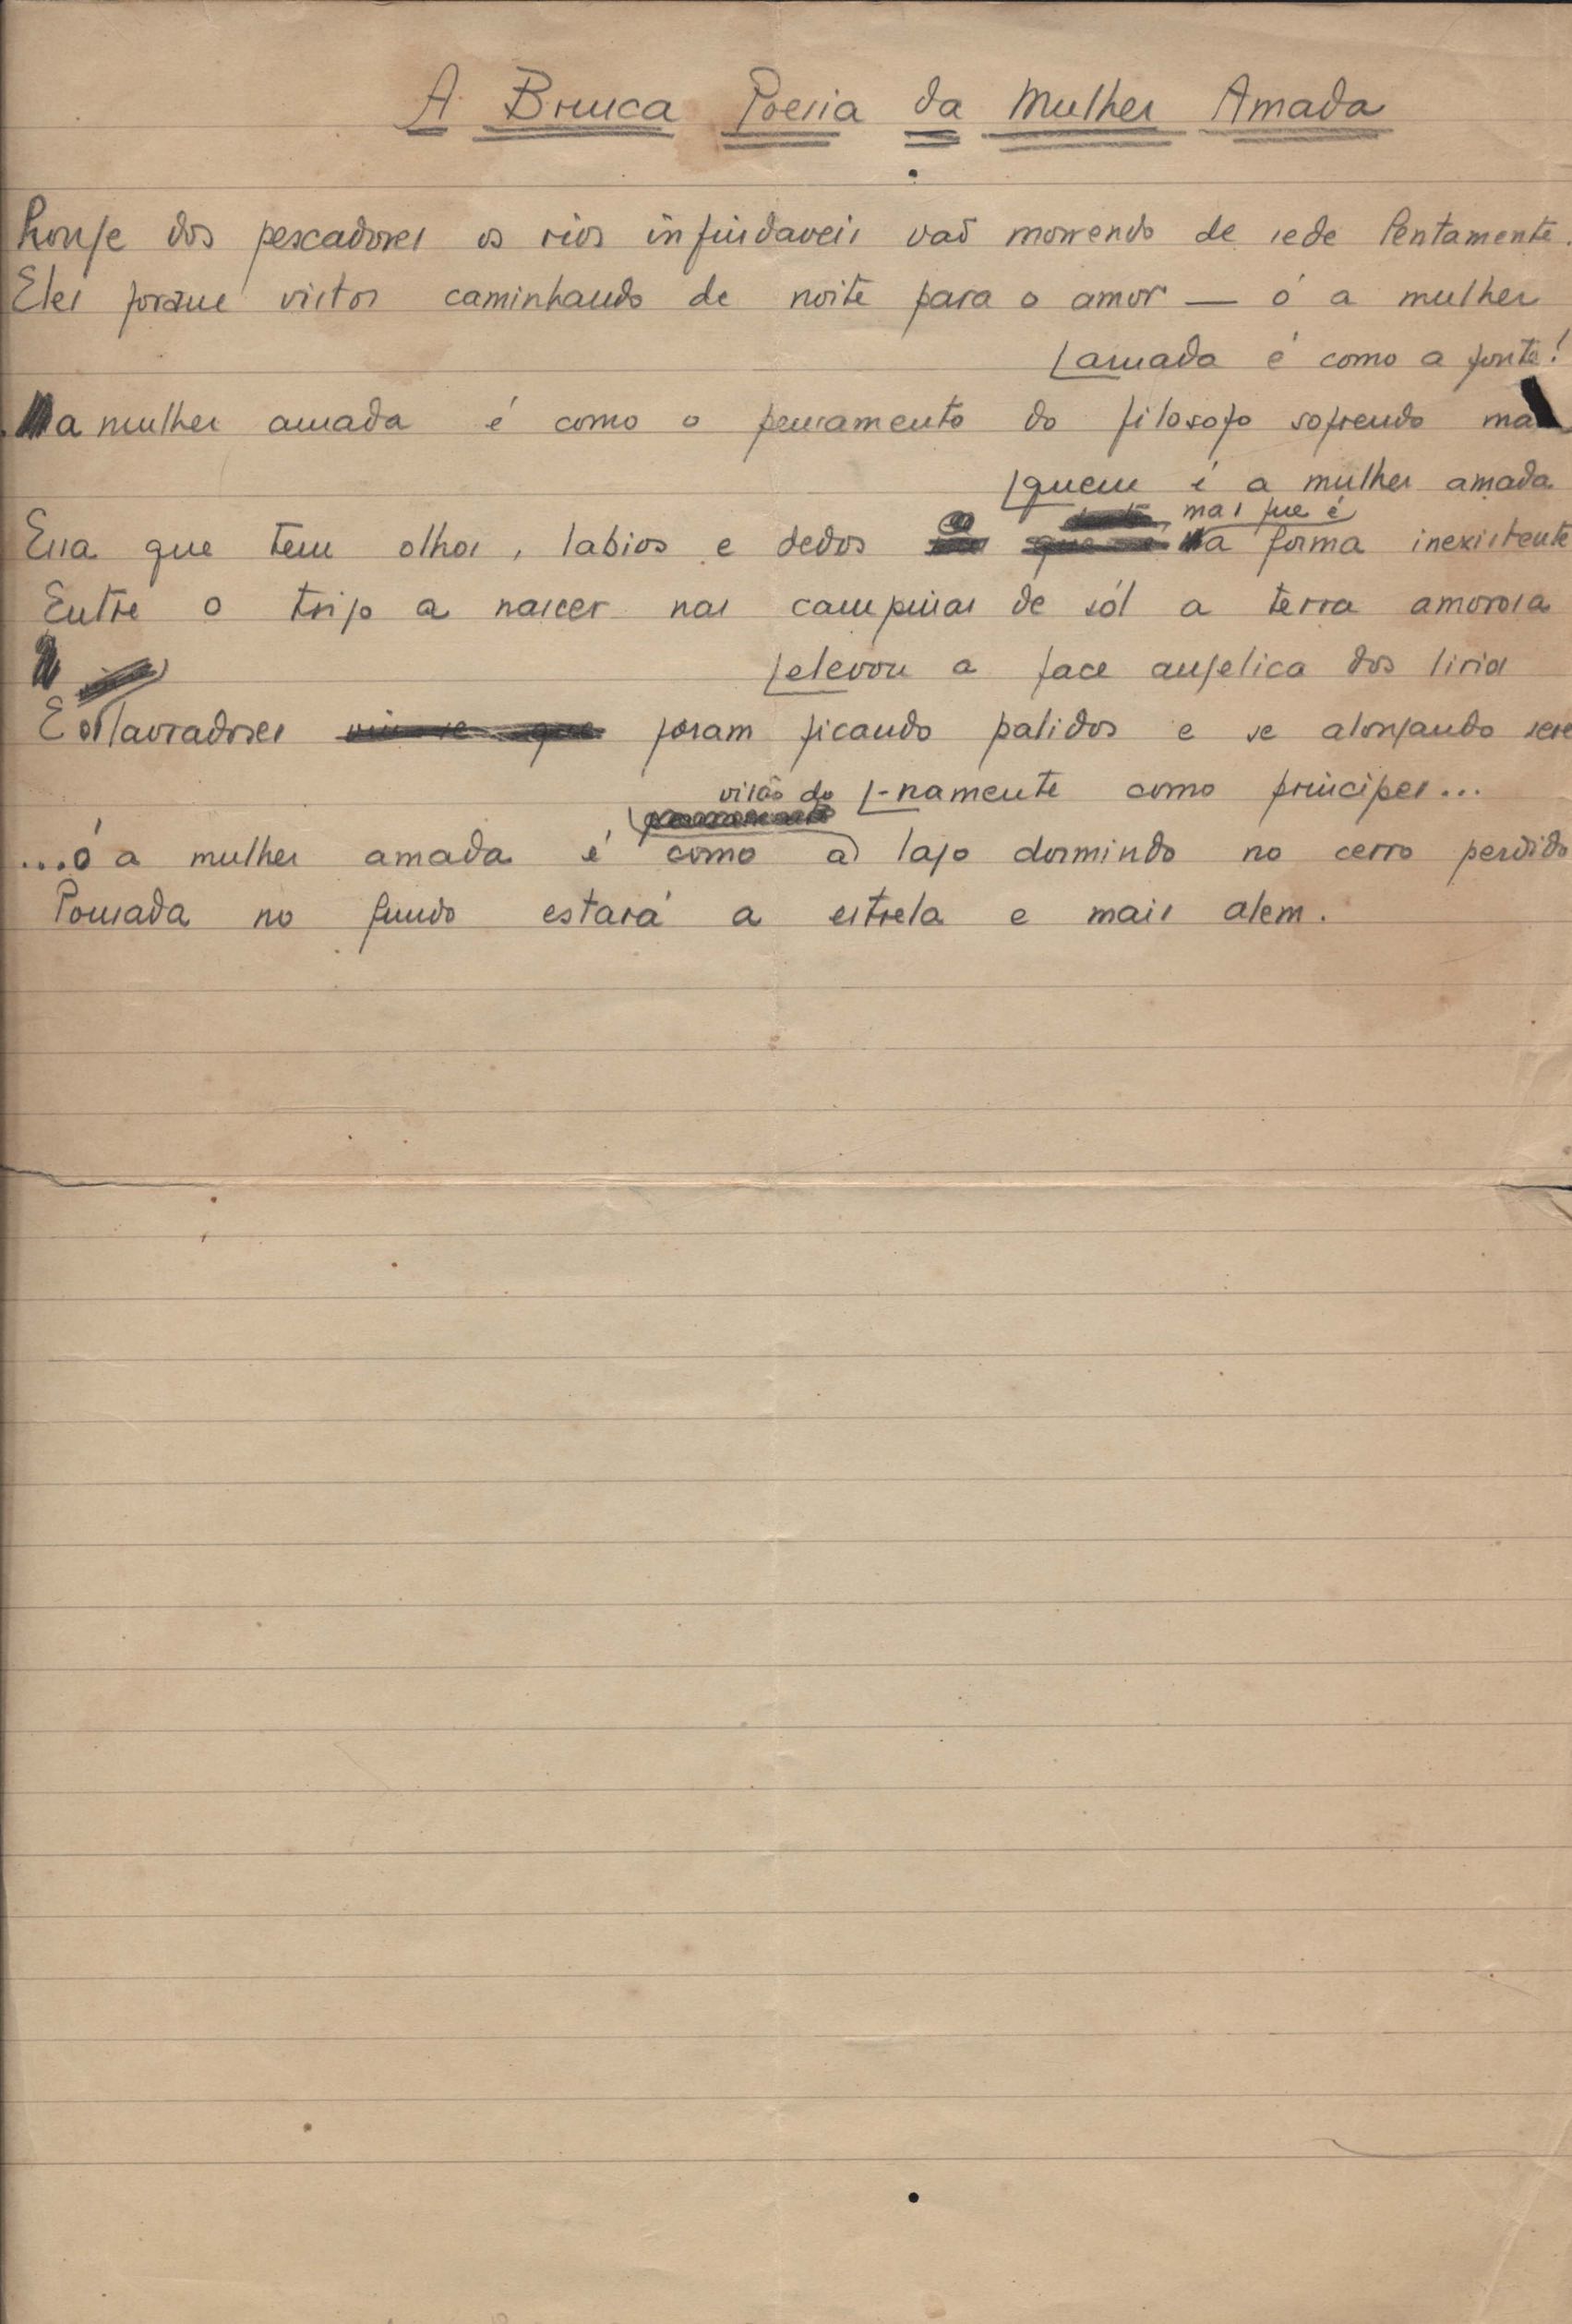 A Brusca Poesia da Mulher Amada
Longe dos pescadores os rios infindaveis vaõ morrendo de sede lentamente.
Eles foram vistos caminhando de noite para o amor — ó a mulher
amada é como a fonte!
a mulher amada é como o pensamento do filosofo sofrendo
quem é a mulher amada
mas que é
Essa que tem olhos, labios e dedos a forma inexistente
Entre o trigo a nascer nas campinas de sól a terra amorosa
elevou a face angelica dos lirios
E os lavradores foram ficando palidos e se alongando sere
-namente como principes...
visão do
...ó a mulher amada é como a lago dormindo no cerro perdido
Pousada no fundo estará a estrela e mais alem.